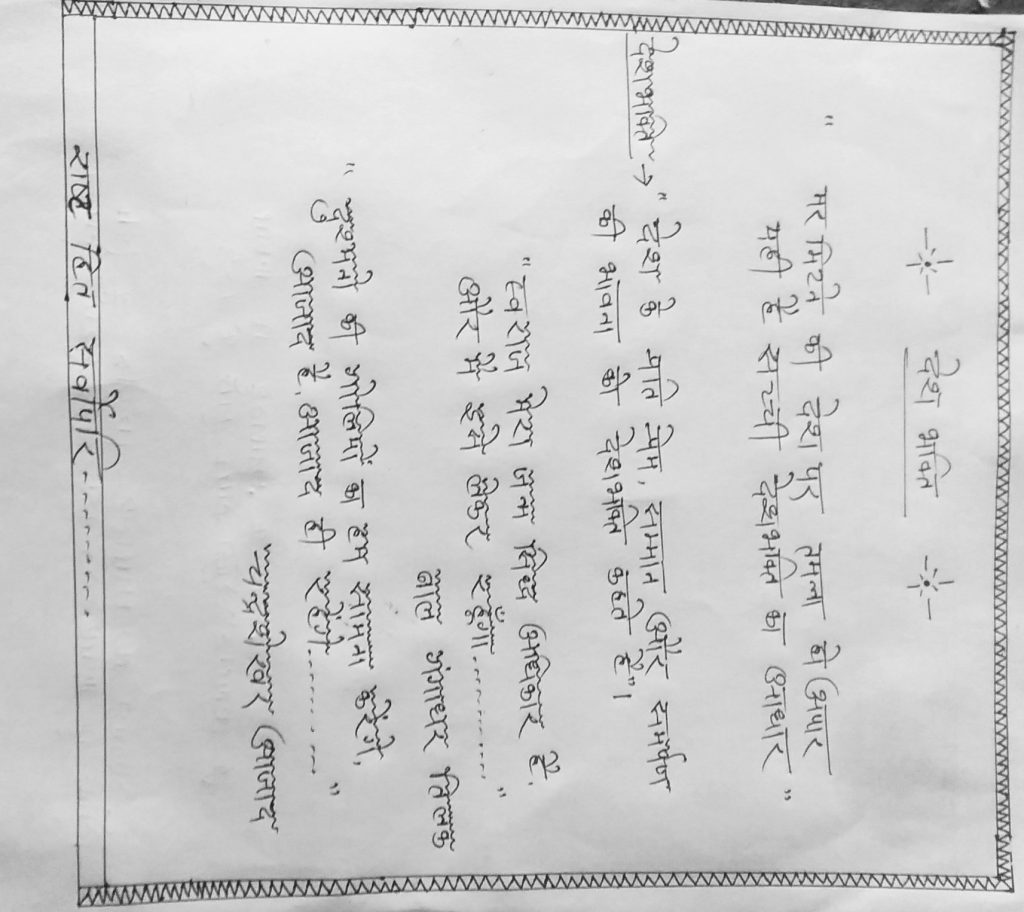 देश भक्ति
" मर मिटने की देश पर तमन्ना हो अपार
यही है सच्ची देशभक्ति का आधार "
देशभक्ति → " देश के प्रति प्रेम, सम्मान और समर्पण
की भावना को देशभक्ति कहते है"।
" स्वराज मेरा जन्म सिद्ध अधिकार है.
और मैं इसे लेकर रहूँगा.......... "
बाल गंगाधर तिलक
" दुश्मनो की गोलियों का हम सामना करेंगे,
आजाद है, आजाद ही रहेंगे.......... "
चन्द्रशेखर आजाद
राष्ट्र हित सर्वोपरि..........